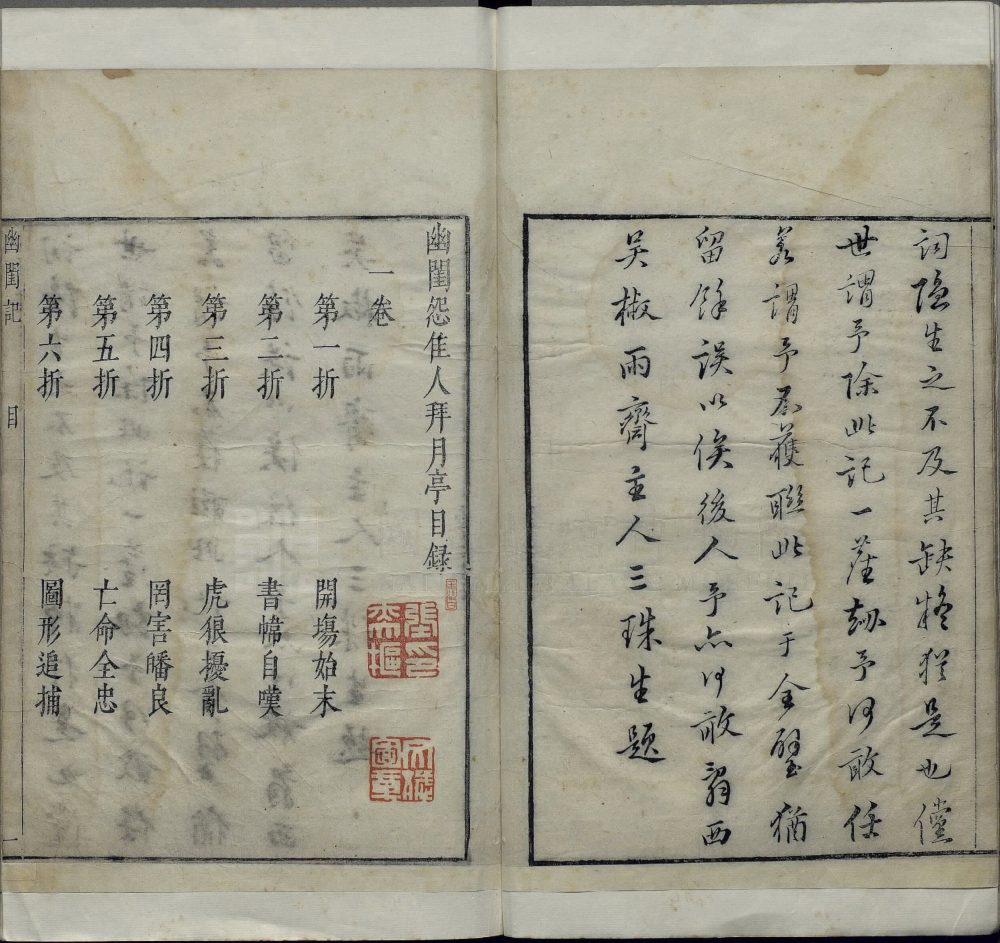 詞隱生之不及其缺疑猶是也儻
世謂予除此記一厄劫予何敢任
若謂予不獲聯此記于全璧猶
留餘誤以俟後人予亦何敢辭西
吳椒雨齋主人三珠生題
幽閨怨佳人拜月亭目録
一卷
第一折 開場始末
第二折 書幃自嘆
第三折 虎狼擾亂
第四折 罔害皤良
第五折 亡命全忠
第六折 圖形追捕
幽閨記 目 一